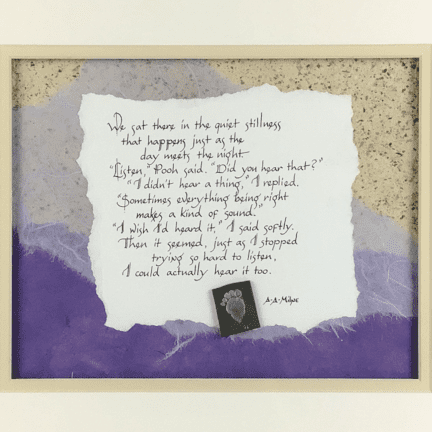 We sat there in the quiet stillness
that happens just as the
day meets the night
"Listen," Pooh said. "Did you hear that?"
"I didn't hear a thing," I replied.
"Sometimes everything being right
makes a kind of sound."
"I wish I'd heard it," I said softly.
Then it seemed, just as I stopped
trying so hard to listen,
I could actually hear it too.
A.A. Milne